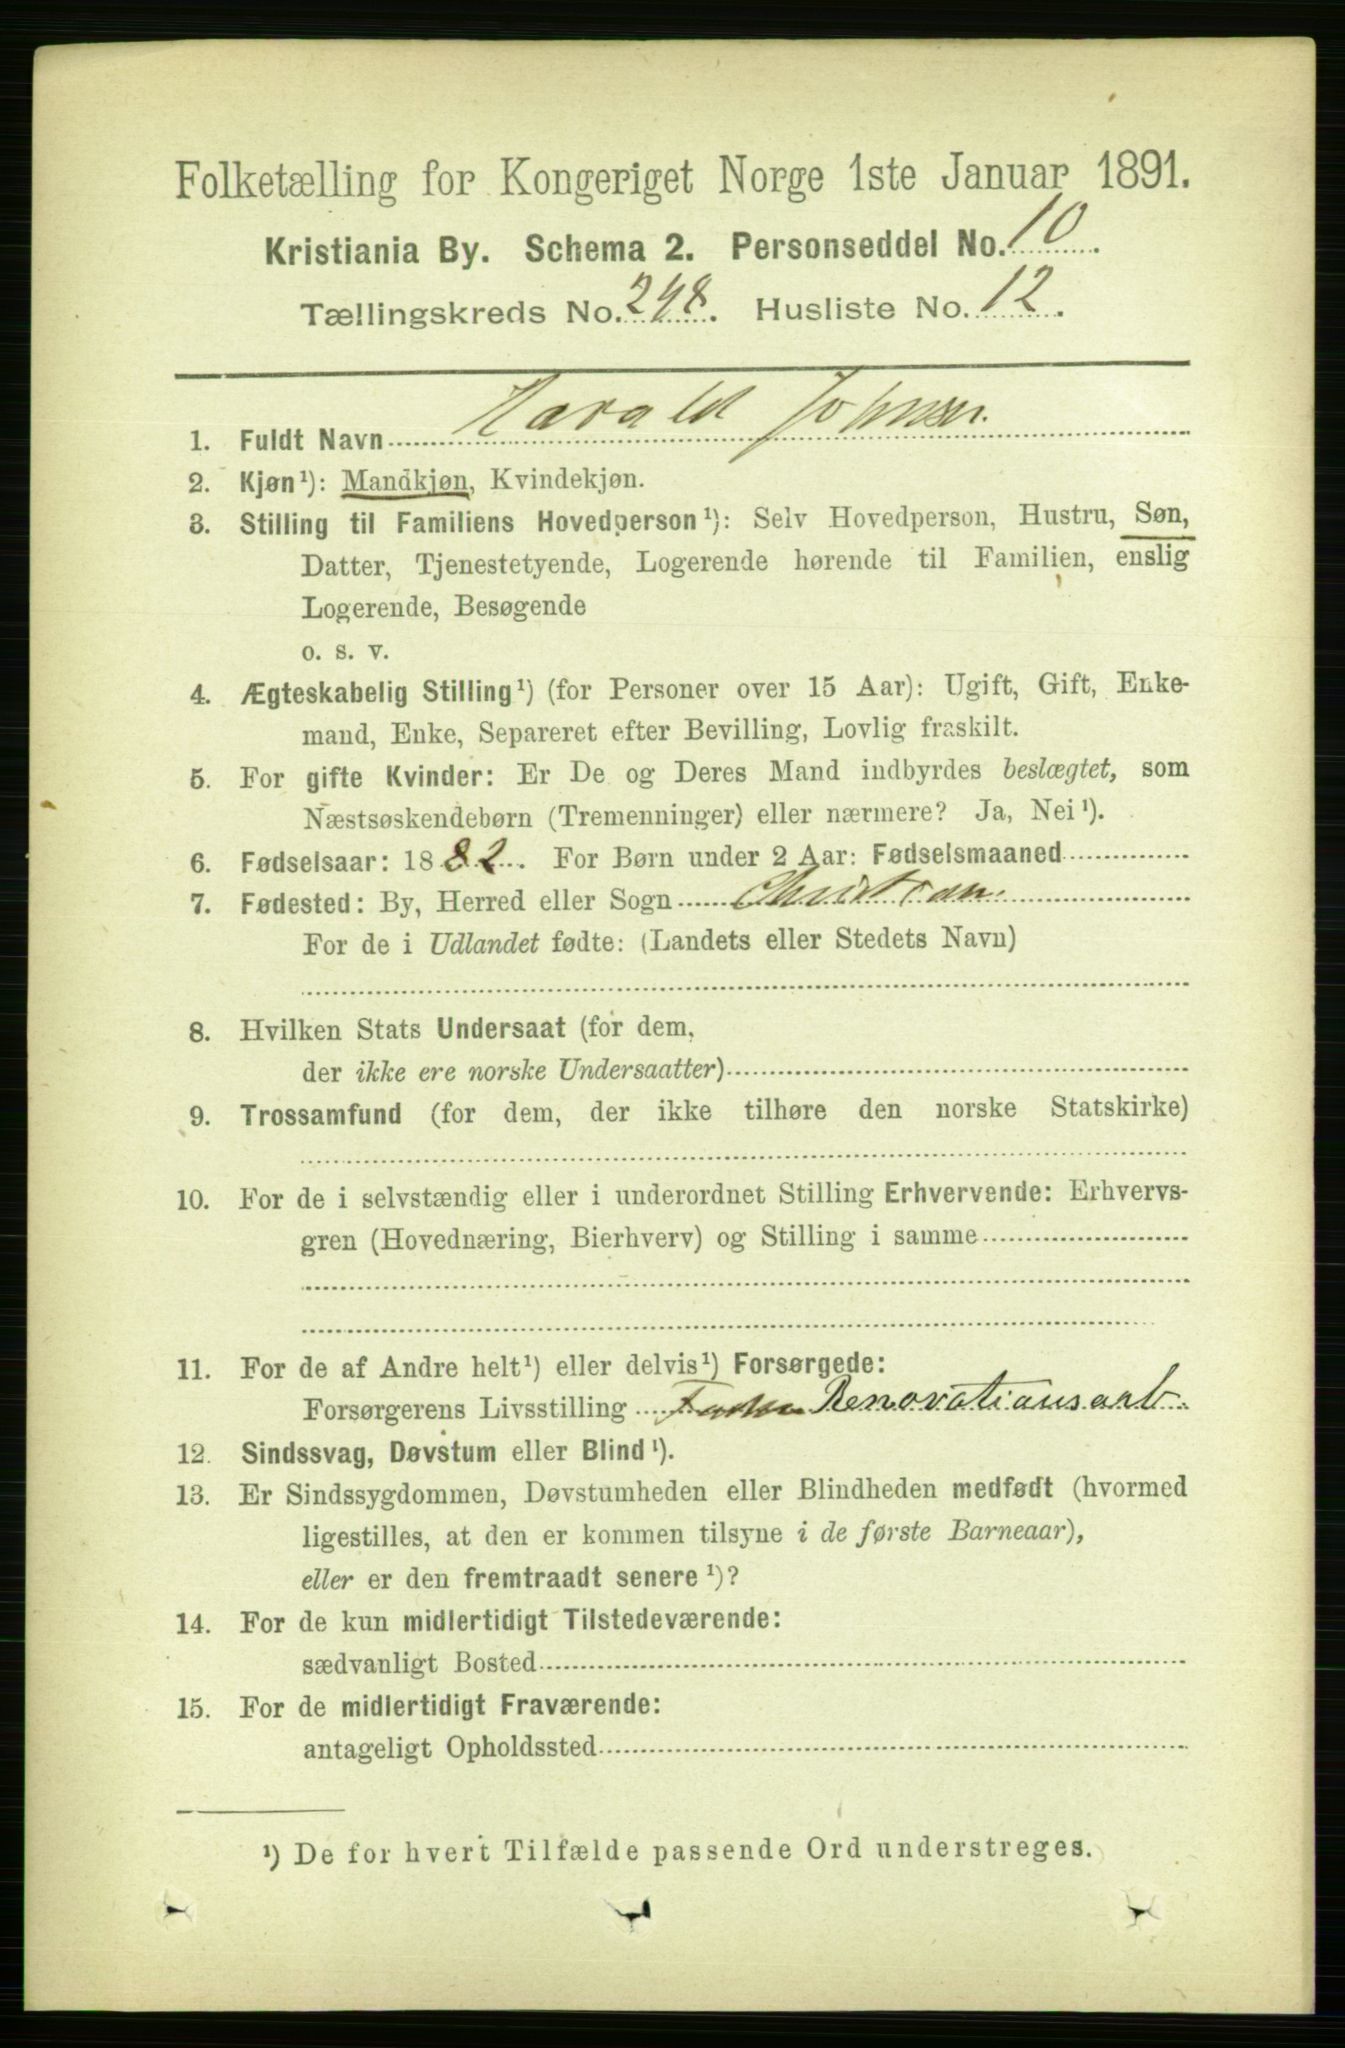 Folketælling for Kongeriget Norge 1ste Januar 1891.
Kristiania By. Schema 2. Personseddel No. 10.
Tællingskreds No. 248. Husliste No. 12.
1. Fuldt Navn Harald Johnsen.
2. Kjøn¹): Mandkjøn, Kvindekjøn.
3. Stilling til Familiens Hovedperson¹): Selv Hovedperson, Hustru, Søn,
Datter, Tjenestetyende, Logerende hørende til Familien, enslig
Logerende, Besøgende
o. s. v.
4. Ægteskabelig Stilling¹) (for Personer over 15 Aar): Ugift, Gift, Enke-
mand, Enke, Separeret efter Bevilling, Lovlig fraskilt.
5. For gifte Kvinder: Er De og Deres Mand indbyrdes beslægtet, som
Næstsøskendebørn (Tremenninger) eller nærmere? Ja, Nei¹).
6. Fødselsaar: 1882. For Børn under 2 Aar: Fødselsmaaned
7. Fødested: By, Herred eller Sogn Christian.
For de i Udlandet fødte: (Landets eller Stedets Navn)
8. Hvilken Stats Undersaat (for dem,
der ikke ere norske Undersaatter)
9. Trossamfund (for dem, der ikke tilhøre den norske Statskirke)
10. For de i selvstændig eller i underordnet Stilling Erhvervende: Erhvervs-
gren (Hovednæring, Bierhverv) og Stilling i samme
11. For de af Andre helt¹) eller delvis¹) Forsørgede:
Forsørgerens Livsstilling Fader Renovationsarb.
12. Sindssvag, Døvstum eller Blind¹).
13. Er Sindssygdommen, Døvstumheden eller Blindheden medfødt (hvormed
ligestilles, at den er kommen tilsyne i de første Barneaar),
eller er den fremtraadt senere¹)?
14. For de kun midlertidigt Tilstedeværende:
sædvanligt Bosted
15. For de midlertidigt Fraværende:
antageligt Opholdssted
¹) De for hvert Tilfælde passende Ord understreges.